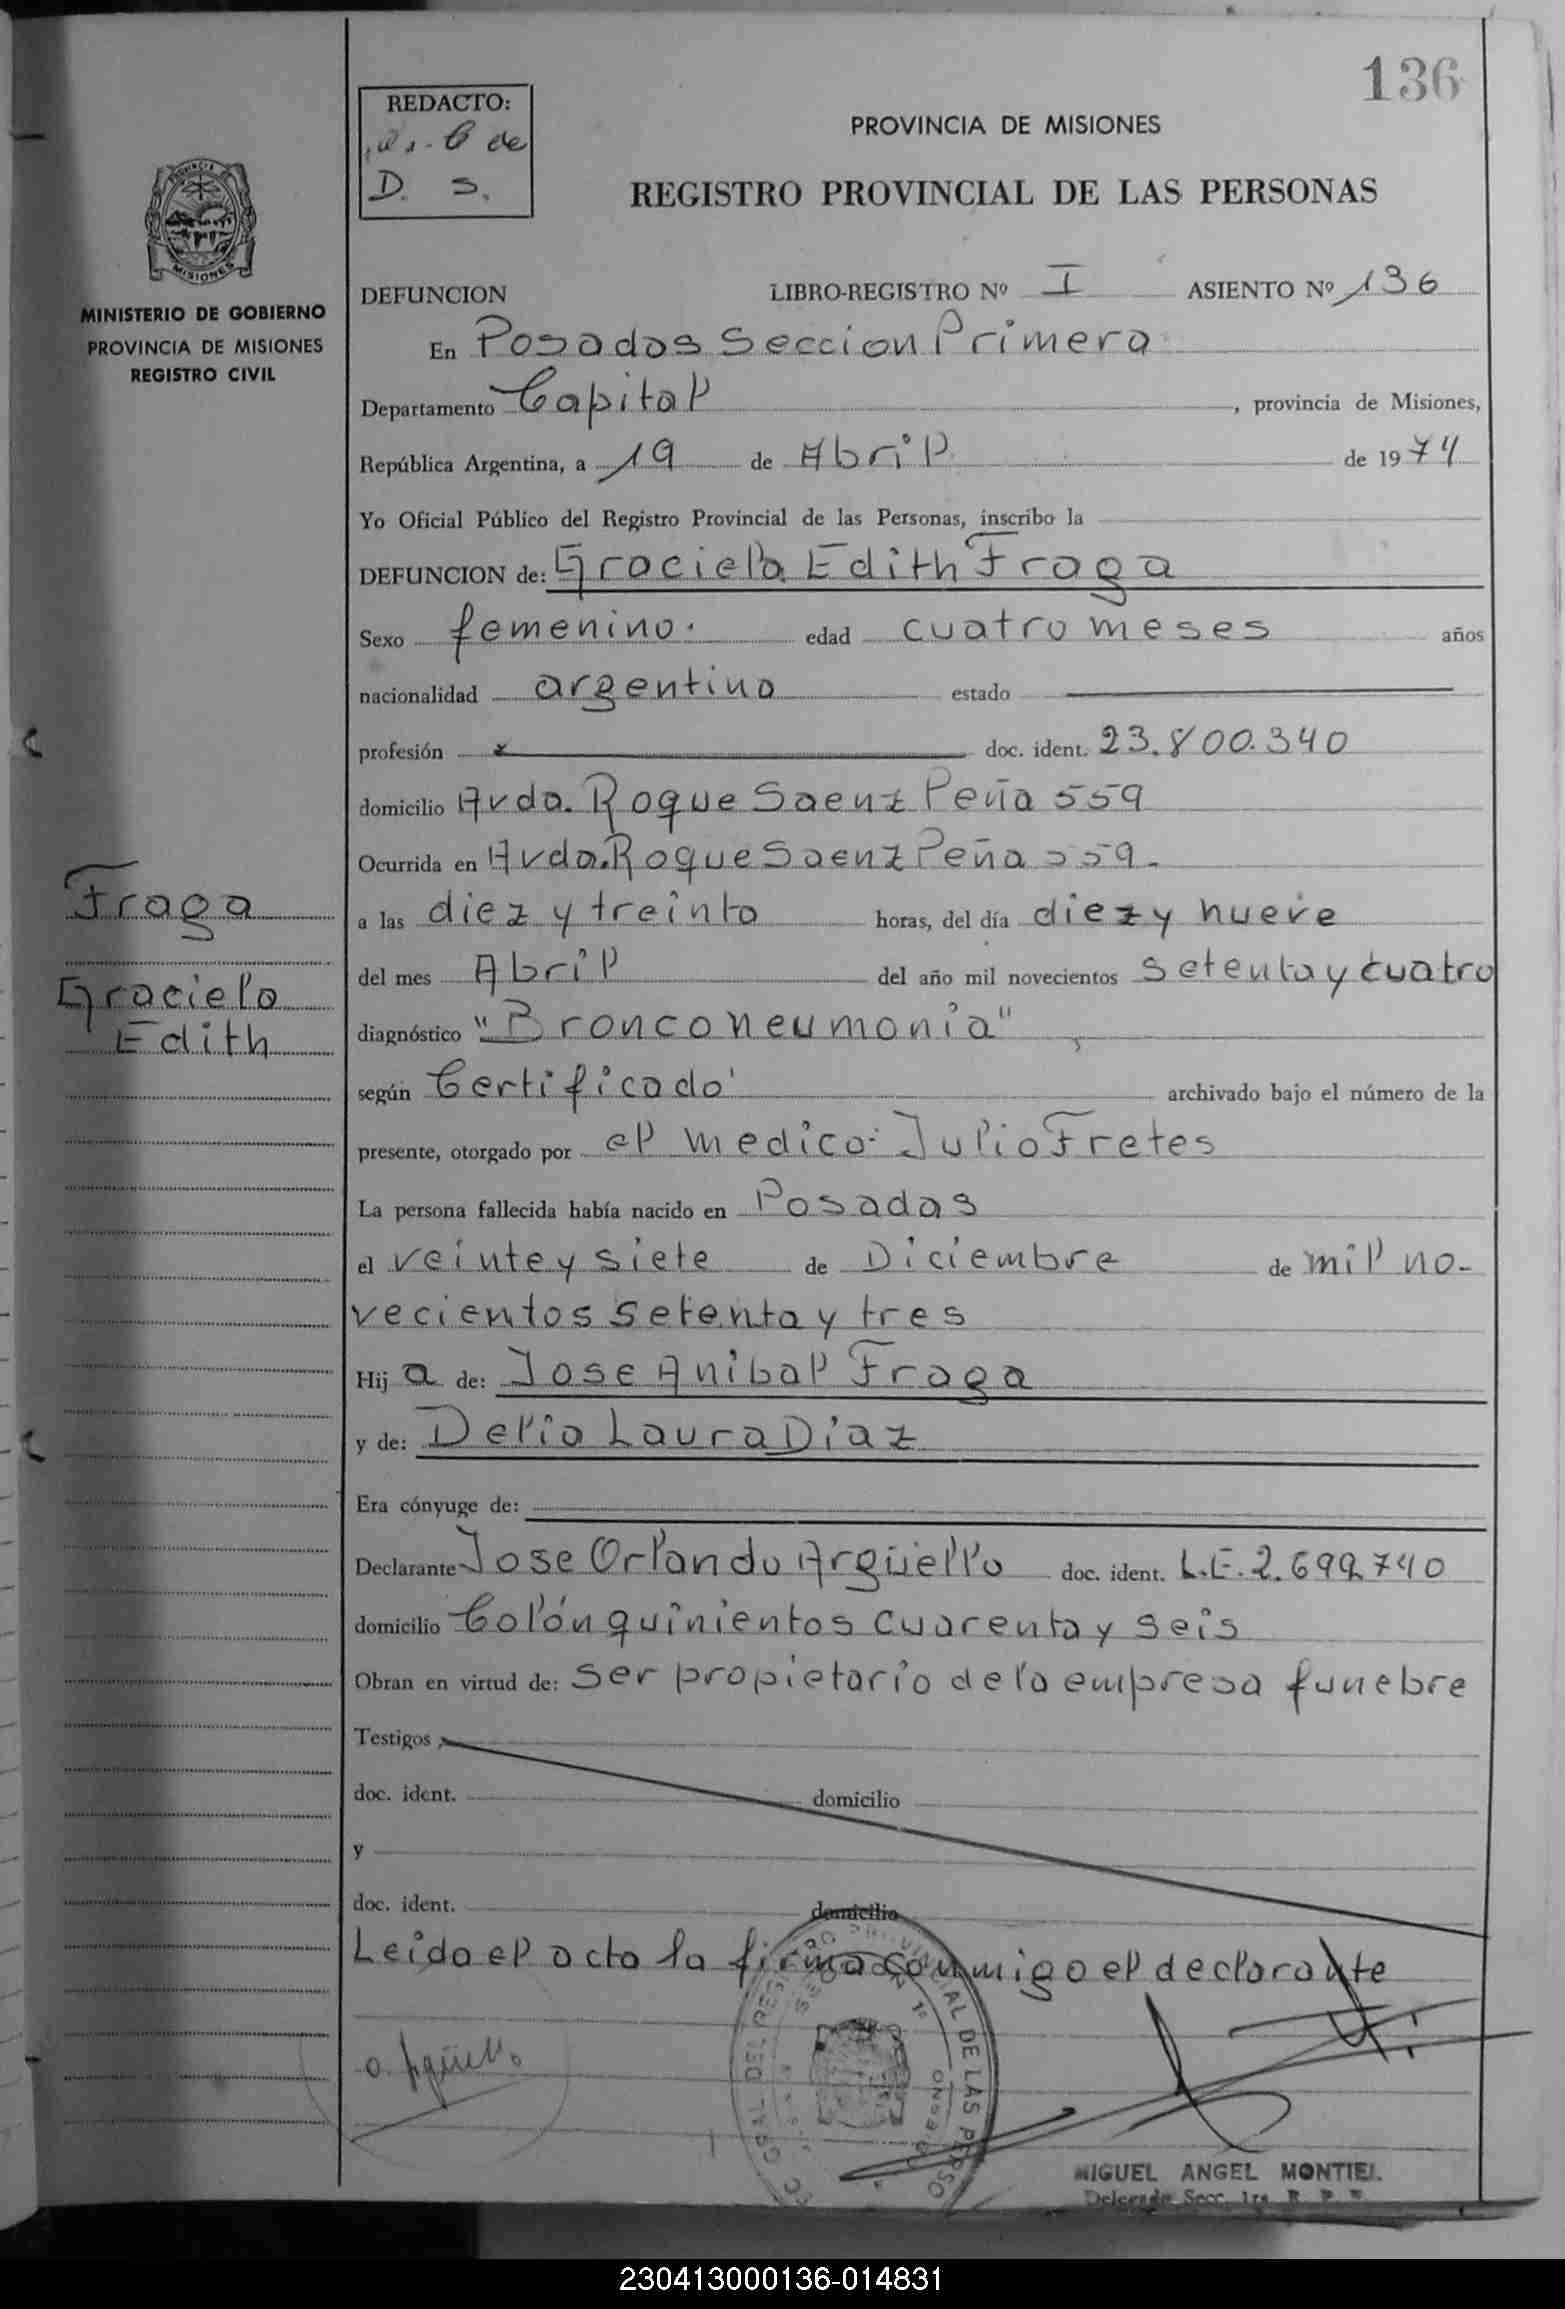 136
REDACTO:
D. S.
PROVINCIA DE MISIONES
REGISTRO PROVINCIAL DE LAS PERSONAS
PROVINCIA
MISIONES
MINISTERIO DE GOBIERNO
PROVINCIA DE MISIONES
REGISTRO CIVIL
DEFUNCION LIBRO-REGISTRO Nº I ASIENTO Nº 136
En Posadas Seccion Primera
Departamento Capital, provincia de Misiones,
República Argentina, a 19 de Abril de 1974
Yo Oficial Público del Registro Provincial de las Personas, inscribo la
DEFUNCION de: Graciela Edith Fraga
Sexo femenino. edad cuatro meses años
nacionalidad argentina estado
profesión doc. ident. 23.800.340
domicilio Avda. Roque Saenz Peña 559
Ocurrida en Avda. Roque Saenz Peña 559.
a las diez y treinta horas, del día diez y nueve
del mes Abril del año mil novecientos setenta y cuatro
diagnóstico "Bronconeumonia"
según Certificado archivado bajo el número de la
presente, otorgado por el medico: Julio Fretes
La persona fallecida había nacido en Posadas
el veinte y siete de Diciembre de mil no-
vecientos setenta y tres
Hija de: Jose Anibal Fraga
y de: Delia Laura Diaz
Era cónyuge de:
Declarante Jose Orlando Argüello doc. ident. L.E. 2.699.740
domicilio Colón quinientos cuarenta y seis
Obran en virtud de: Ser propietario de la empresa funebre
Testigos
doc. ident. domicilio
y
doc. ident. domicilio
Leida el acta la firma conmigo el declarante
Fraga
Graciela
Edith
O. Argüello
MIGUEL ANGEL MONTIEL
Delegado Secc. 1ra. R. P. P.
230413000136-014831